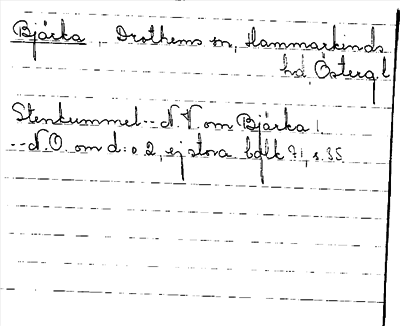 Bjärka, Drothems sn, Hammarkinds
hd, Östergl
Stenkummel -- N.V. om Bjärka 1.
-- N.O. om d:o 2, ej stora bålk ?!, s. 35